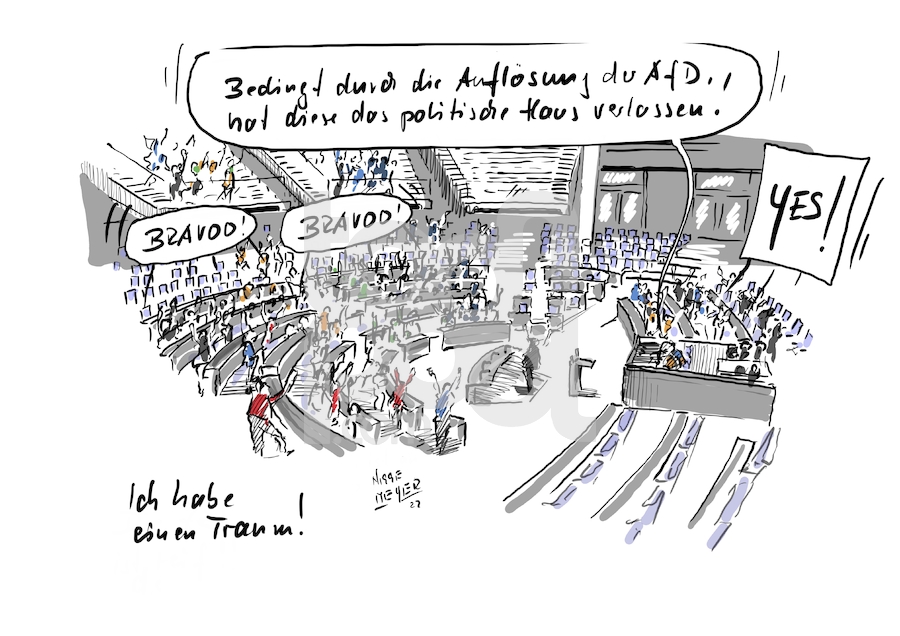 Bedingt durch die Auflösung der AfD.,
hat diese das politische Haus verlassen.
YES!
BRAVOO!
BRAVOO!
Ich habe
einen Traum!
NISSE
MEYER